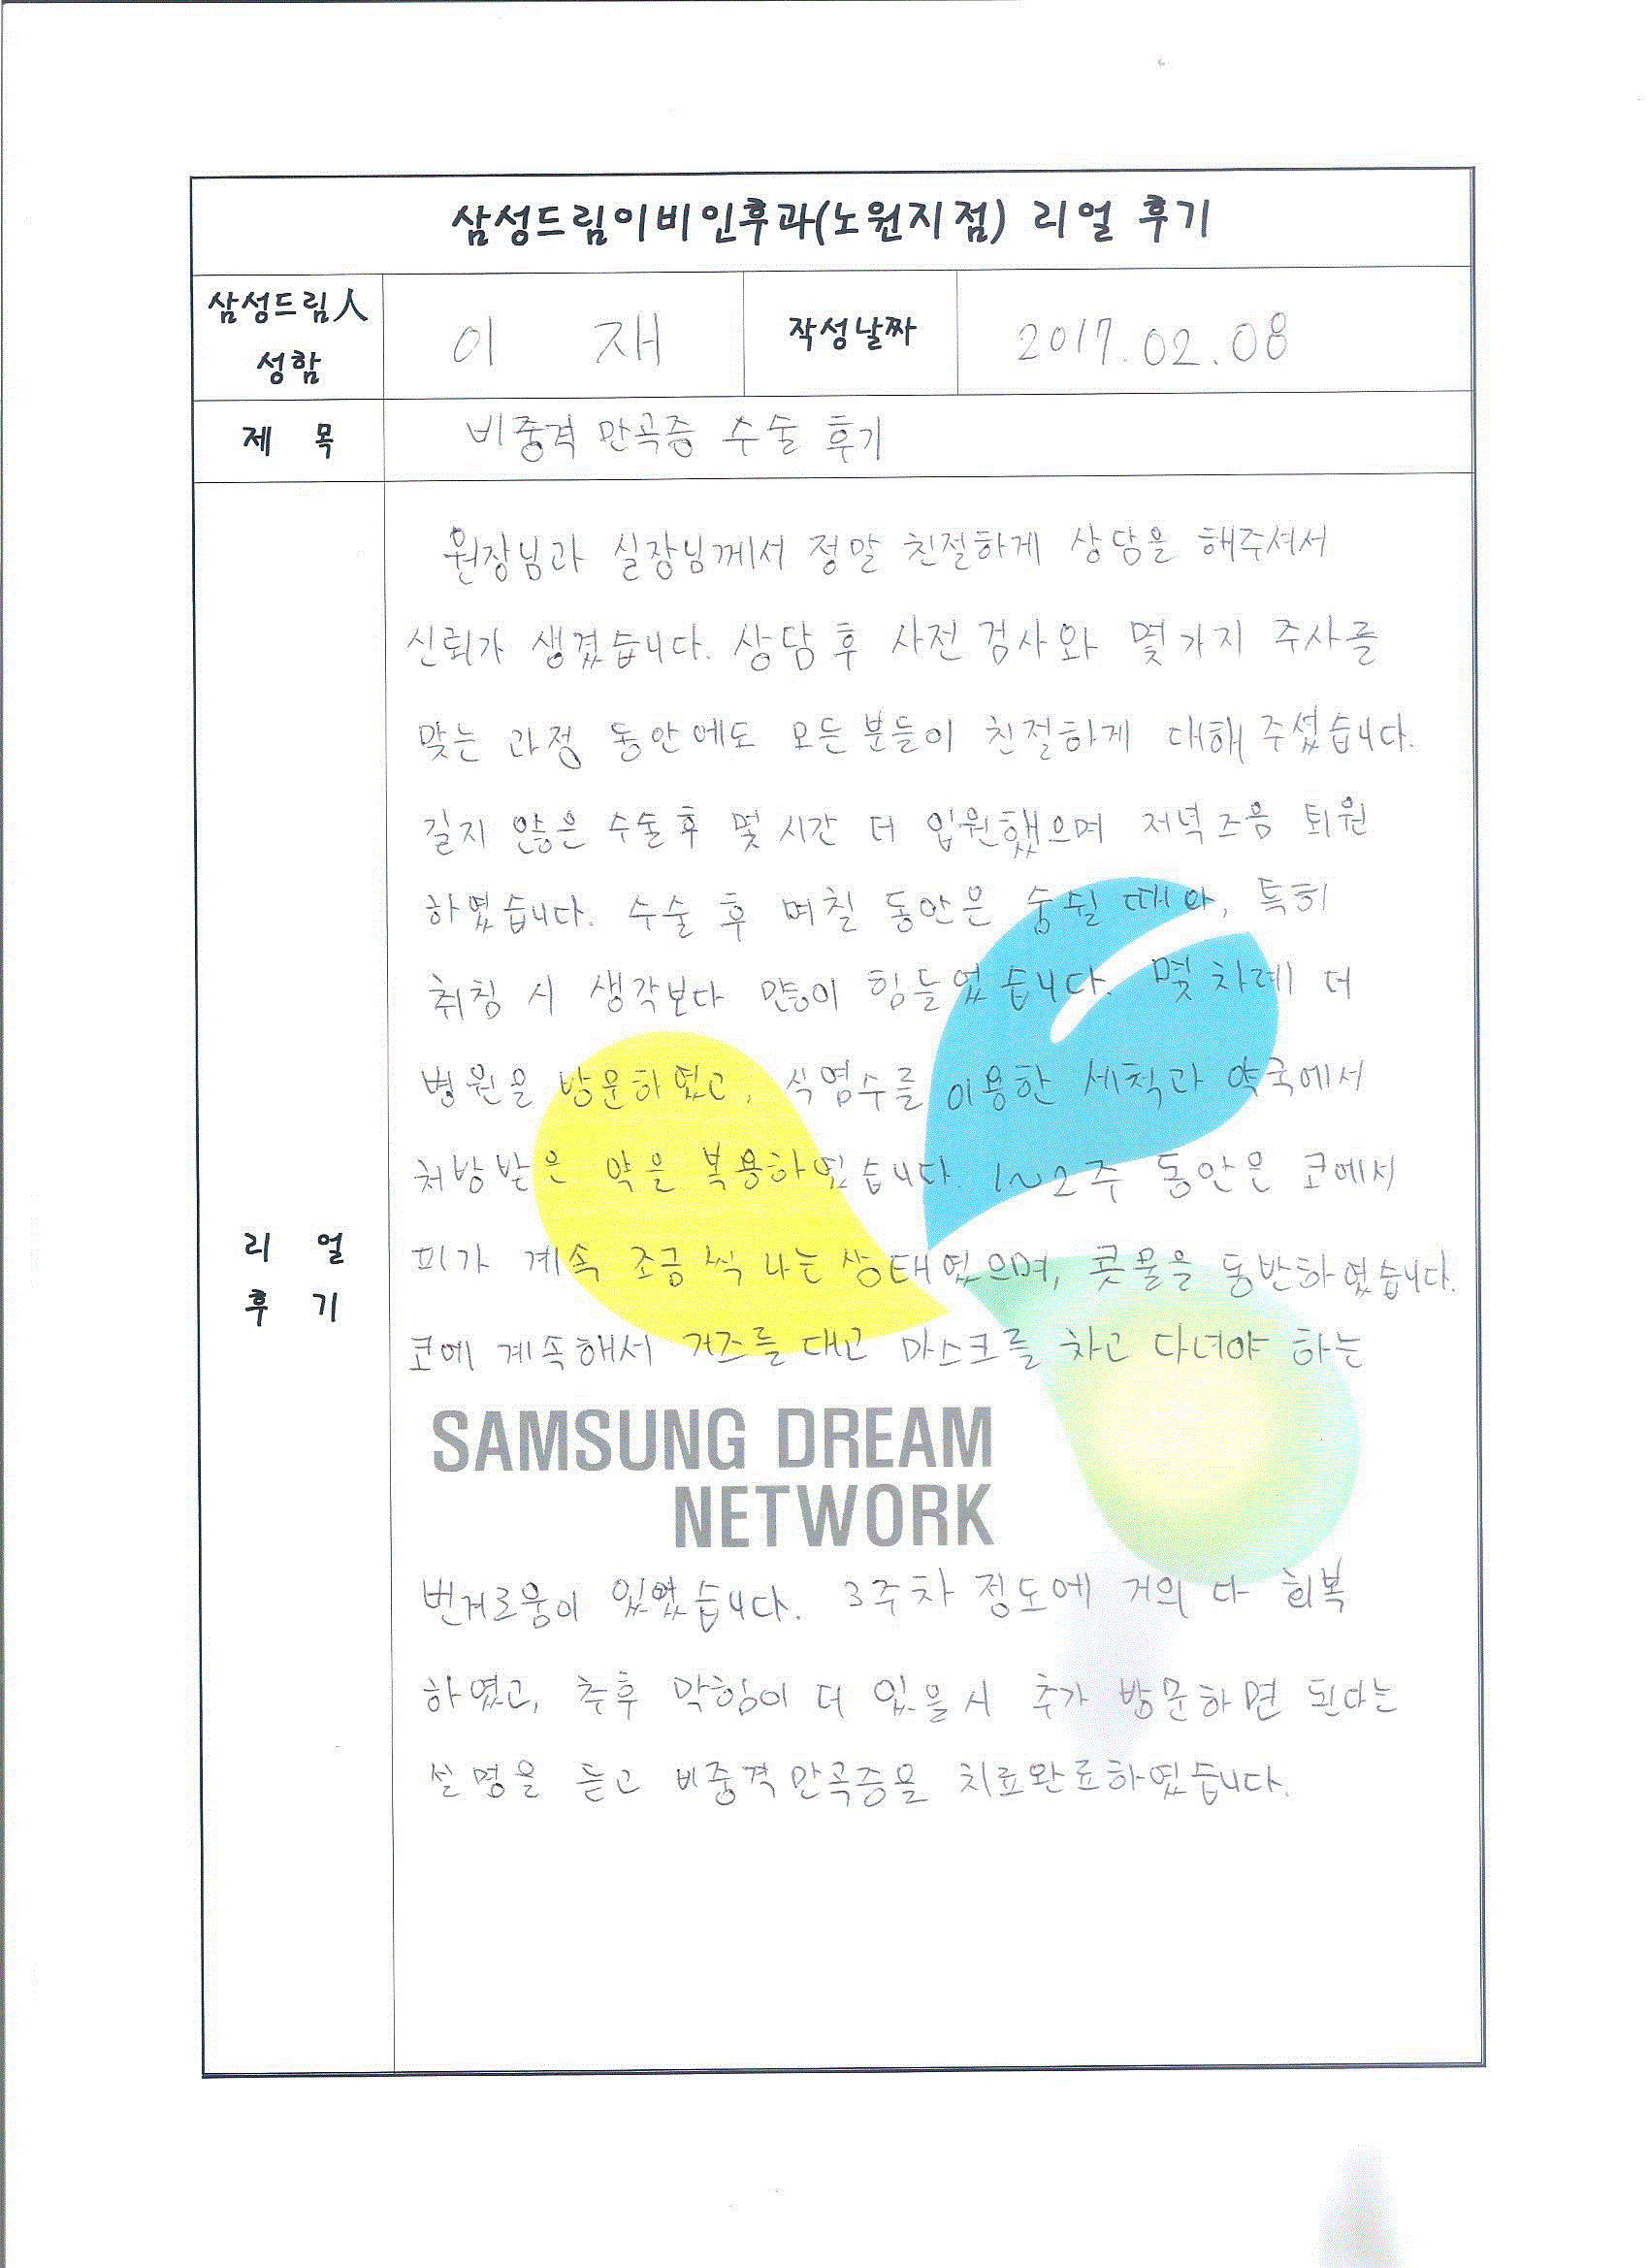 삼성드림이비인후과(노원지점) 리얼 후기
삼성드림人
성함
이 재
작성날짜
2017.02.08
제 목
비중격 만곡증 수술 후기
리 얼
후 기
원장님과 실장님께서 정말 친절하게 상담을 해주셔서
신뢰가 생겼습니다. 상담 후 사전 검사와 몇가지 주사를
맞는 과정 동안에도 모든 분들이 친절하게 대해 주셨습니다.
길지 않은 수술후 몇 시간 더 입원했으며 저녁즈음 퇴원
하였습니다. 수술 후 며칠 동안은 숨쉴 때와, 특히
취침 시 생각보다 많이 힘들었습니다. 몇 차례 더
병원을 방문하였고, 식염수를 이용한 세척과 약국에서
처방받은 약을 복용하였습니다. 1~2주 동안은 코에서
피가 계속 조금씩 나는 상태였으며, 콧물을 동반하였습니다.
코에 계속해서 거즈를 대고 마스크를 차고 다녀야 하는
SAMSUNG DREAM
NETWORK
번거로움이 있었습니다. 3주차 정도에 거의 다 회복
하였고, 추후 막힘이 더 있을시 추가 방문하면 된다는
설명을 듣고 비중격 만곡증을 치료완료하였습니다.